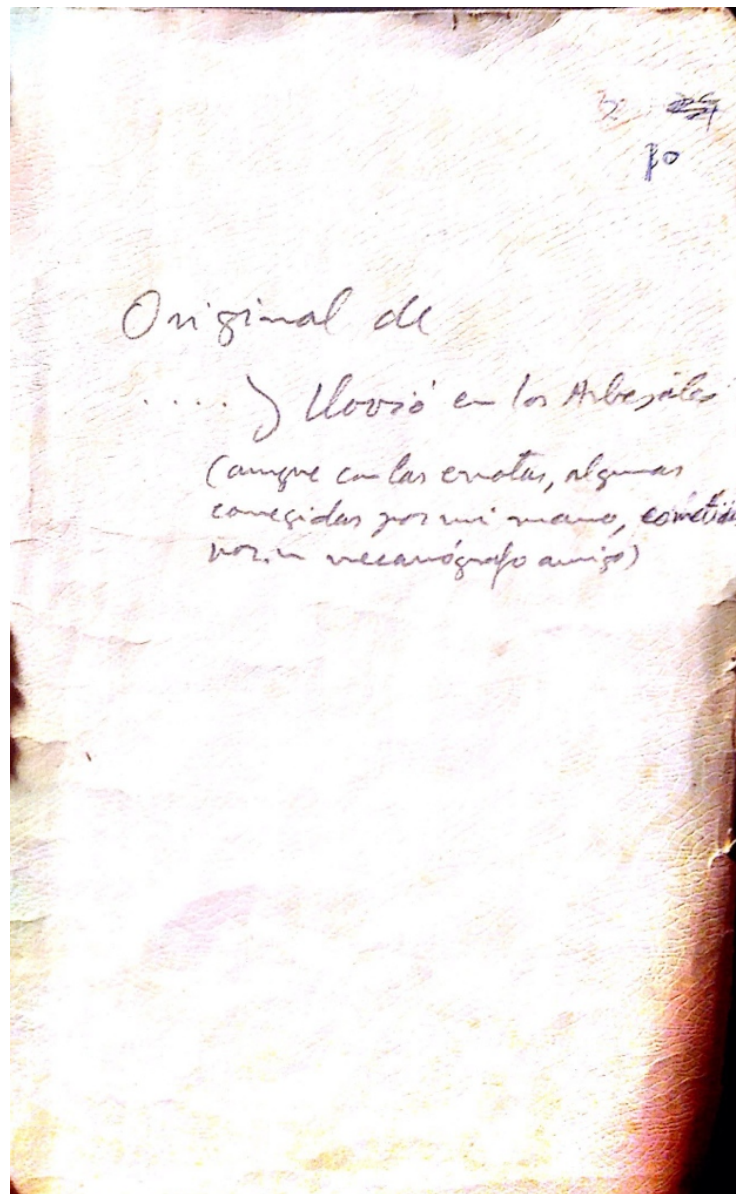 10
Original de
..... y llovió en los Arbejales
(aunque con las erratas, algunas
corregidas por mi mano, cometidas
por un mecanógrafo amigo)